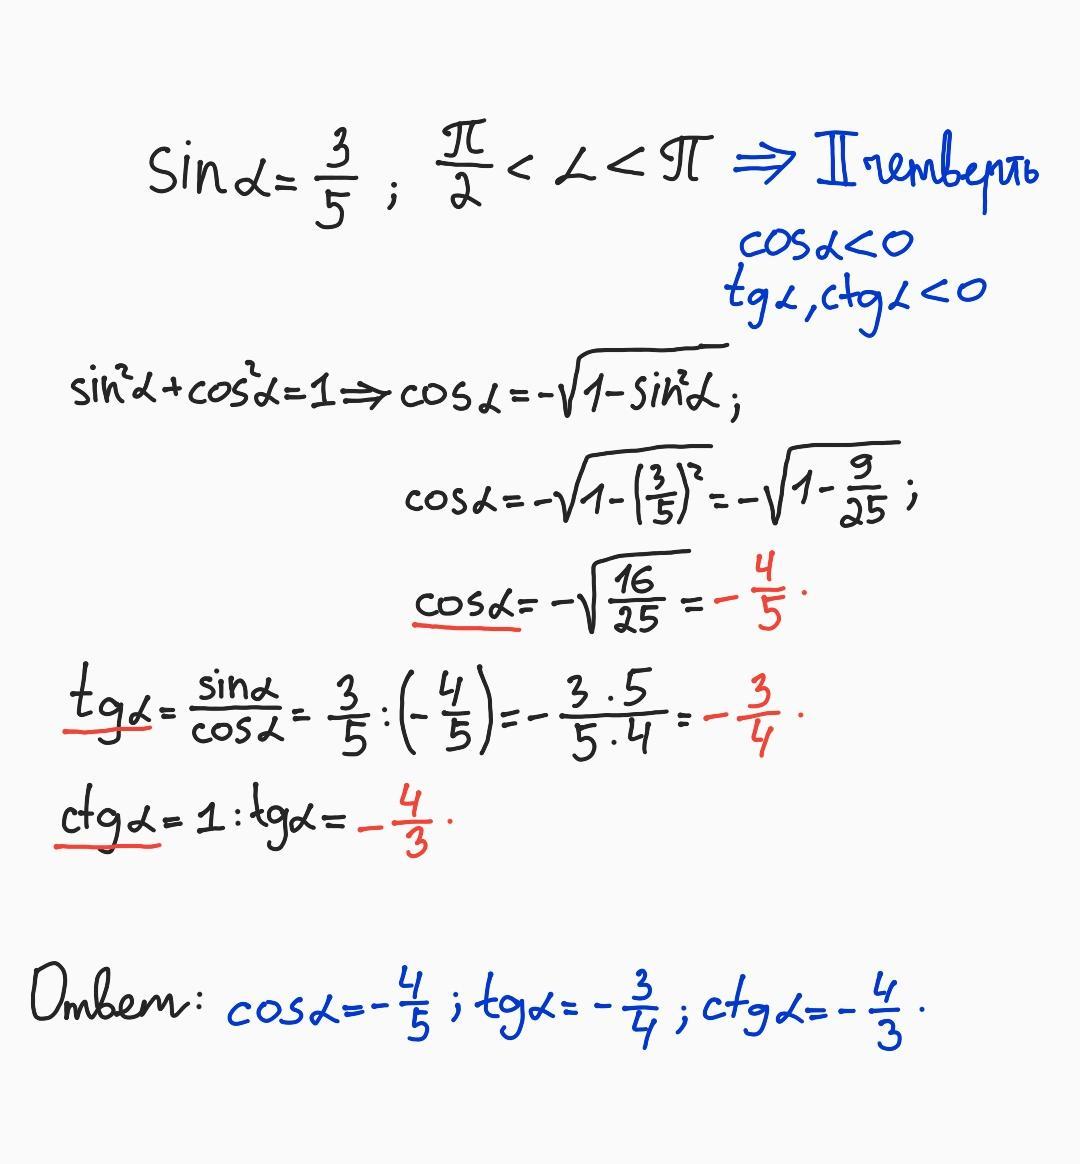 sinα = 3/5 ; π/2 < α < π ⇒ II четверть
cosα < 0
tgα, ctgα < 0
sin²α + cos²α = 1 ⇒ cosα = -√(1 - sin²α) ;
cosα = -√(1 - (3/5)²) = -√(1 - 9/25) ;
cosα = -√(16/25) = - 4/5 .
tgα = sinα/cosα = 3/5 : (- 4/5) = - 3·5/5·4 = - 3/4 .
ctgα = 1 : tgα = - 4/3 .
Ответ: cosα = - 4/5 ; tgα = - 3/4 ; ctgα = - 4/3 .